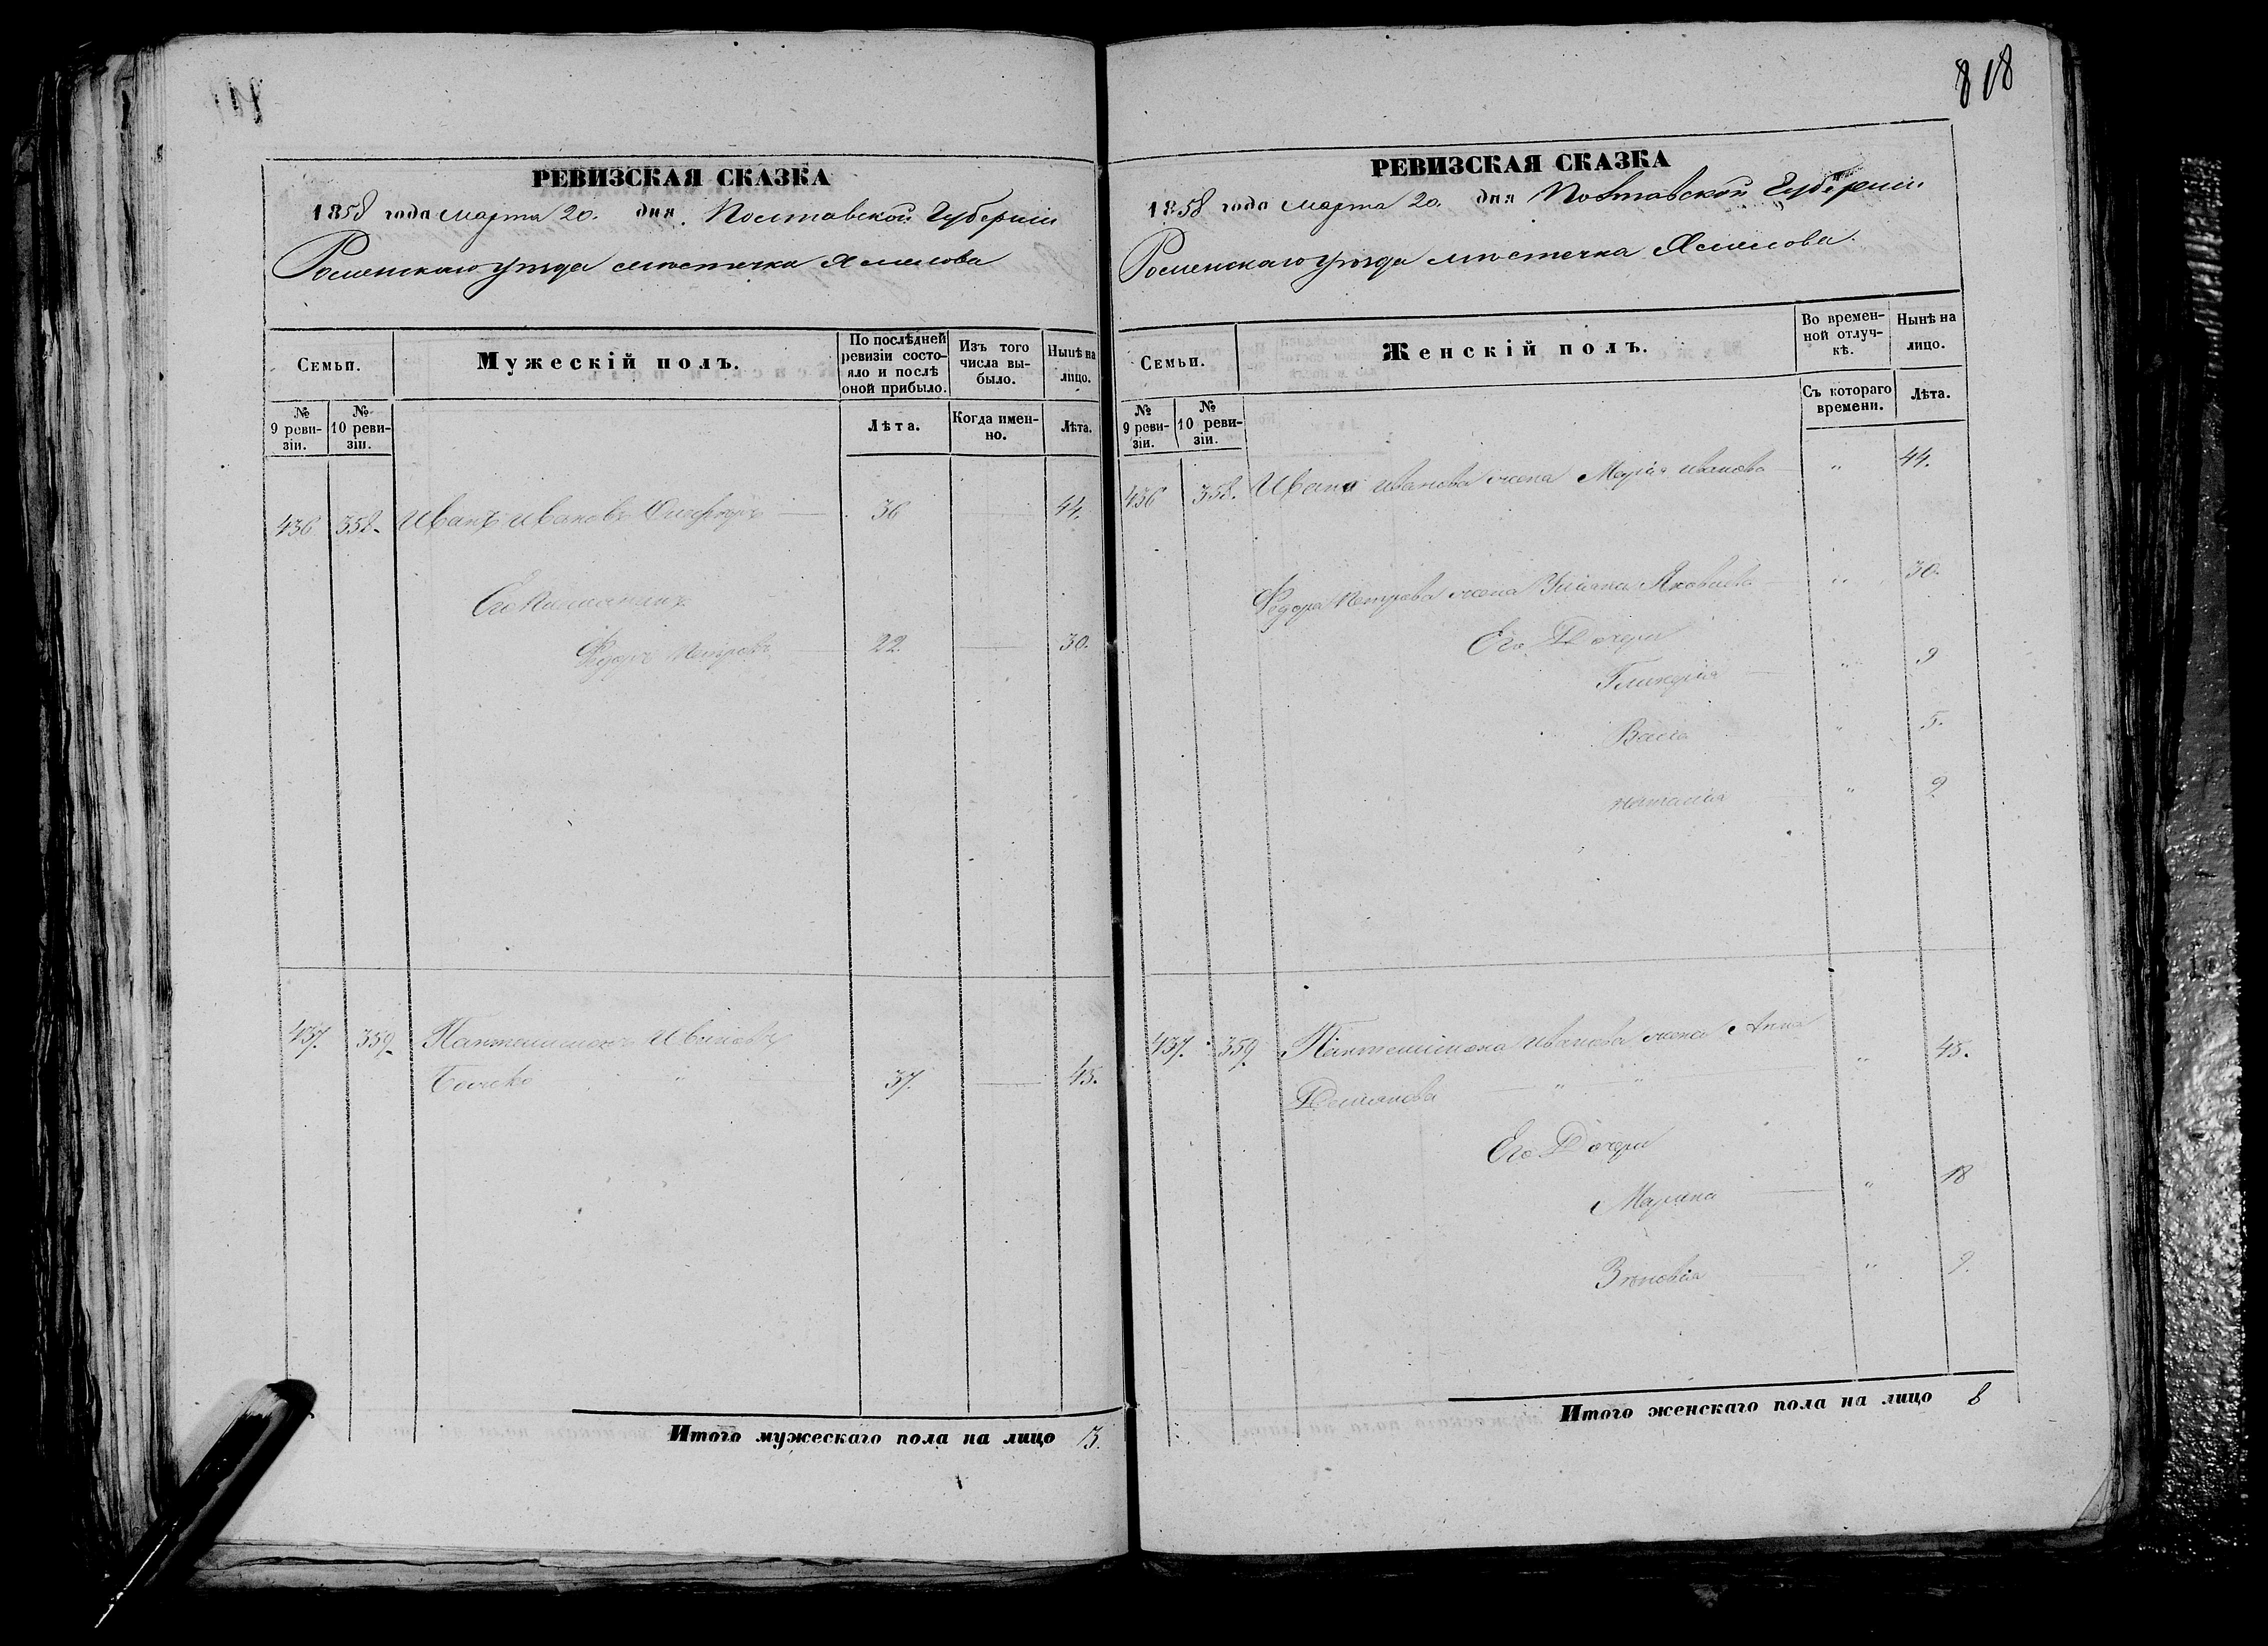 818
РЕВИЗСКАЯ СКАЗКА
1858 года марта 20. дня Полтавской Губерніи
Роменскаго уѣзда мѣстечка Смелова
Семьи.
Мужескій полъ.
По послѣдней ревизіи состояло и послѣ оной прибыло.
Изъ того числа выбыло.
Нынѣ на лицо.
№ 9 ревизіи.
№ 10 ревизіи.
Лѣта.
Когда именно.
Лѣта.
436 358. Иванъ Ивановъ 36 44.
Его племянникъ
Федоръ Петровъ 22. 30.
437. 359. Пантелимонъ Ивановъ
37. 45.
Итого мужескаго пола на лицо 3.
РЕВИЗСКАЯ СКАЗКА
1858 года марта 20. дня Полтавской Губерніи
Роменскаго уѣзда мѣстечка Смелова.
Семьи.
Женскій полъ.
Во временной отлучкѣ.
Нынѣ на лицо.
№ 9 ревизіи.
№ 10 ревизіи.
Съ котораго времени.
Лѣта.
436 358. Ивана Иванова жена Марія Иванова " 44.
Федора Петрова жена Уліяна Яковлева " 30.
Его Дочери
Гликерія " 9
Васса " 5.
Наталія "
437. 359. Пантелимона Иванова жена Анна
Демянова " 45.
Его Дочери
Марина " 18
Зѣновія " 9.
Итого женскаго пола на лицо 8